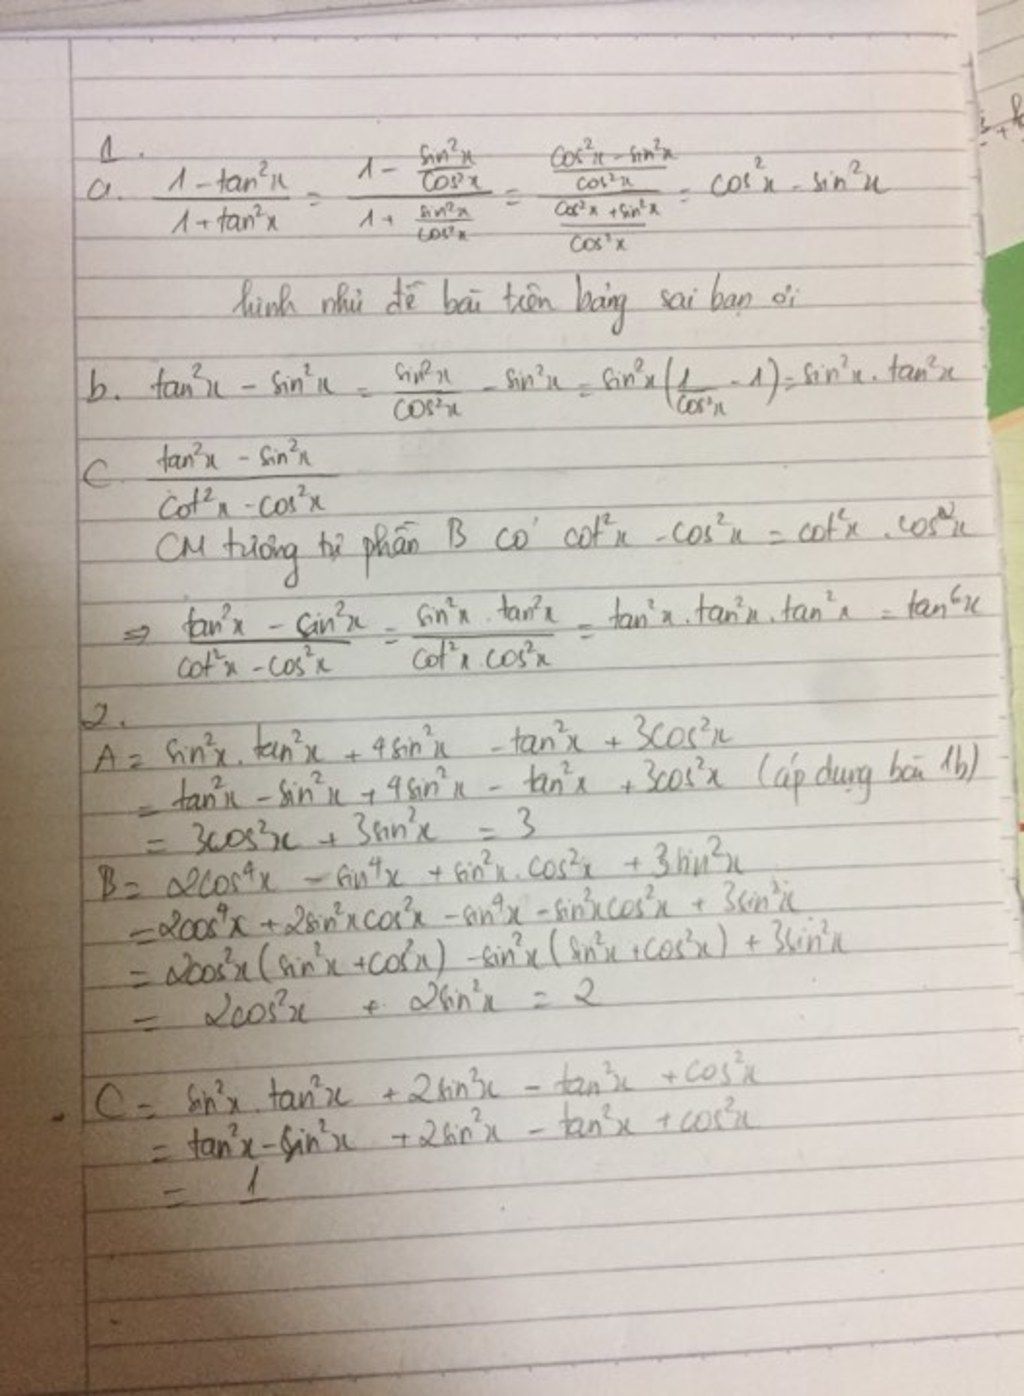 1.
a. (1 - tan²x)/(1 + tan²x) = (1 - sin²x/cos²x)/(1 + sin²x/cos²x) = ((cos²x - sin²x)/cos²x)/((cos²x + sin²x)/cos²x) = cos²x - sin²x
hình như đề bài trên bảng sai bạn ơi
b. tan²x - sin²x = sin²x/cos²x - sin²x = sin²x(1/cos²x - 1) = sin²x . tan²x
C. (tan²x - sin²x)/(cot²x - cos²x)
CM tương tự phần B có cot²x - cos²x = cot²x . cos²x
⇒ (tan²x - sin²x)/(cot²x - cos²x) = (sin²x . tan²x)/(cot²x . cos²x) = tan²x . tan²x . tan²x = tan⁶x
2.
A = sin²x . tan²x + 4sin²x - tan²x + 3cos²x
= tan²x - sin²x + 4sin²x - tan²x + 3cos²x (áp dụng bài 1b)
= 3cos²x + 3sin²x = 3
B = 2cos⁴x - sin⁴x + sin²x . cos²x + 3sin²x
= 2cos⁴x + 2sin²xcos²x - sin⁴x - sin²xcos²x + 3sin²x
= 2cos²x(sin²x + cos²x) - sin²x(sin²x + cos²x) + 3sin²x
= 2cos²x + 2sin²x = 2
C = sin²x . tan²x + 2sin²x - tan²x + cos²x
= tan²x - sin²x + 2sin²x - tan²x + cos²x
= 1